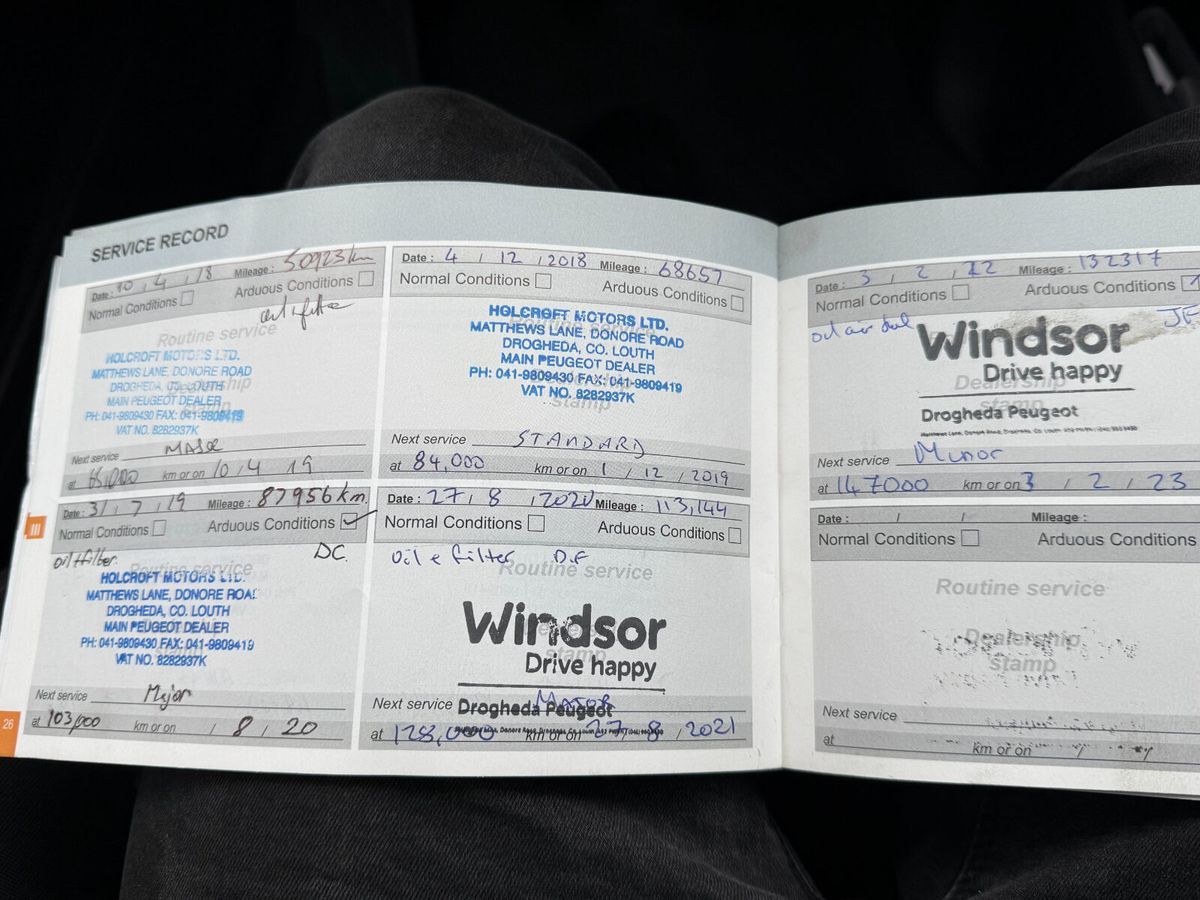 SERVICE RECORD
Date: 10 / 4 / 18 Mileage: 50923km
Normal Conditions Arduous Conditions
Routine service
HOLCROFT MOTORS LTD.
MATTHEWS LANE, DONORE ROAD
DROGHEDA, CO. LOUTH
MAIN PEUGEOT DEALER
PH: 041-9809430 FAX: 041-9809419
VAT NO. 8282937K
Dealership
stamp
Next service
at km or on 10 / 4 19
Date: 4 / 12 / 2018 Mileage: 68657
Normal Conditions Arduous Conditions
Routine service
HOLCROFT MOTORS LTD.
MATTHEWS LANE, DONORE ROAD
DROGHEDA, CO. LOUTH
MAIN PEUGEOT DEALER
PH: 041-9809430 FAX: 041-9809419
VAT NO. 8282937K
stamp
Next service STANDARD
at 84,000 km or on 1 / 12 / 2019
Date: 31 / 7 / 19 Mileage: 87956km.
Normal Conditions Arduous Conditions ✓
oil+filter DC
Routine service
HOLCROFT MOTORS LTD.
MATTHEWS LANE, DONORE ROAD
DROGHEDA, CO. LOUTH
MAIN PEUGEOT DEALER
PH: 041-9809430 FAX: 041-9809419
VAT NO. 8282937K
Next service Major
at 103,000 km or on / 8 / 20
Date: 27 / 8 / 2020 Mileage: 113,144
Normal Conditions Arduous Conditions
oil e filter D.F
Routine service
Windsor
stamp
Drive happy
Next service MAJOR
Drogheda Peugeot
at 128,000 km or on 27 / 8 / 2021
III
26
Date: 3 / 2 / 22 Mileage: 132317
Normal Conditions Arduous Conditions
oil air
Windsor
Drive happy
Dealership
stamp
Drogheda Peugeot
Next service Minor
at 147000 km or on 3 / 2 / 23
Date: / / Mileage:
Normal Conditions Arduous Conditions
Routine service
Dealership
stamp
Next service
at km or on /